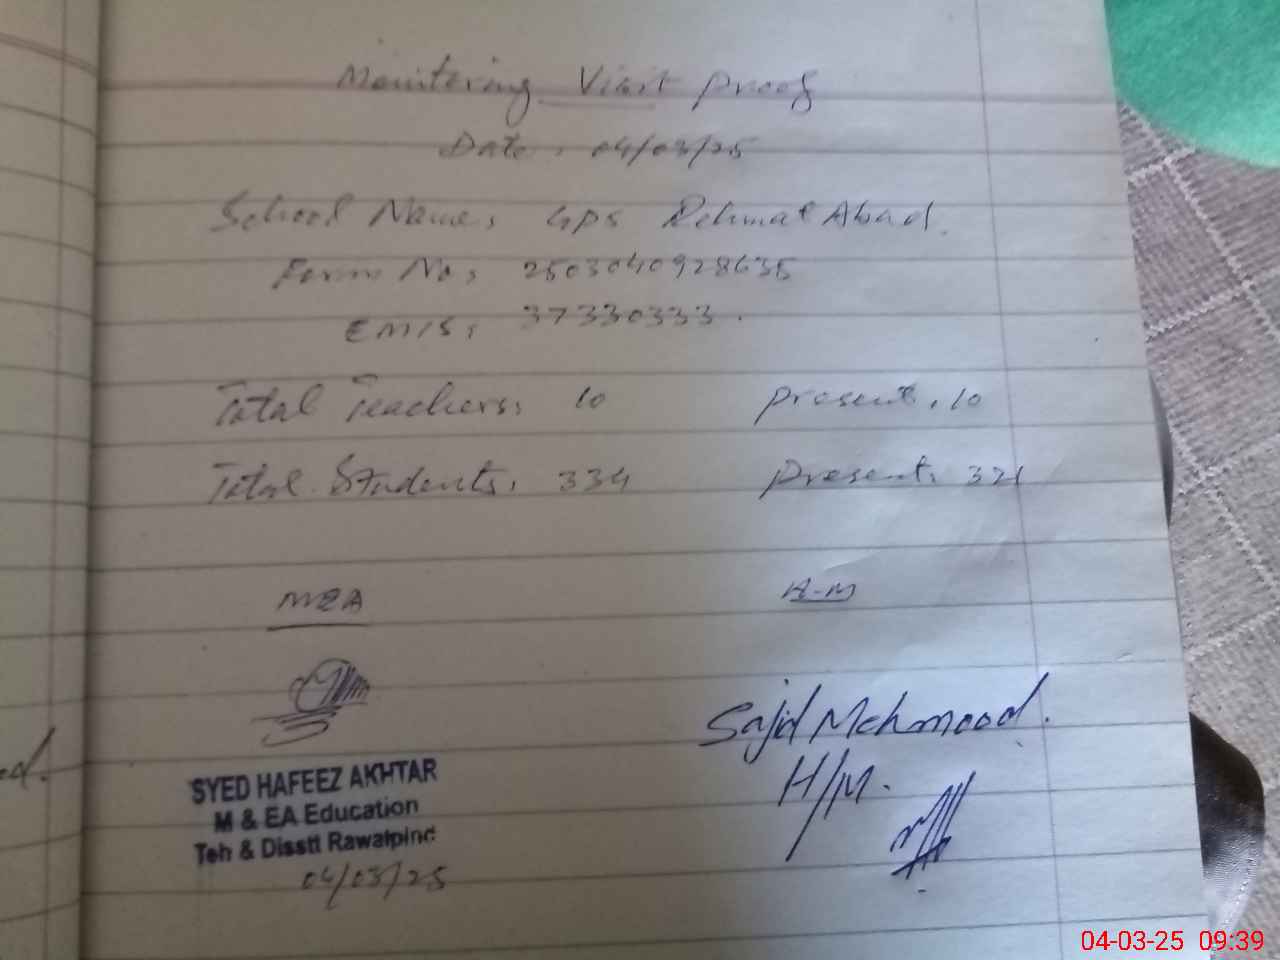 Monitoring Visit Proof
Date: 04/03/25
School Name: GPS Rehmat Abad.
Form No: 2503040928635
EMIS: 37330333.
Total Teachers: 10 Present: 10
Total Students: 334 Present: 321
MEA A-M
Sajid Mehmood.
H/M.
SYED HAFEEZ AKHTAR
M & EA Education
Teh & Disstt Rawalpind
04/03/25
ed.
04-03-25 09:39